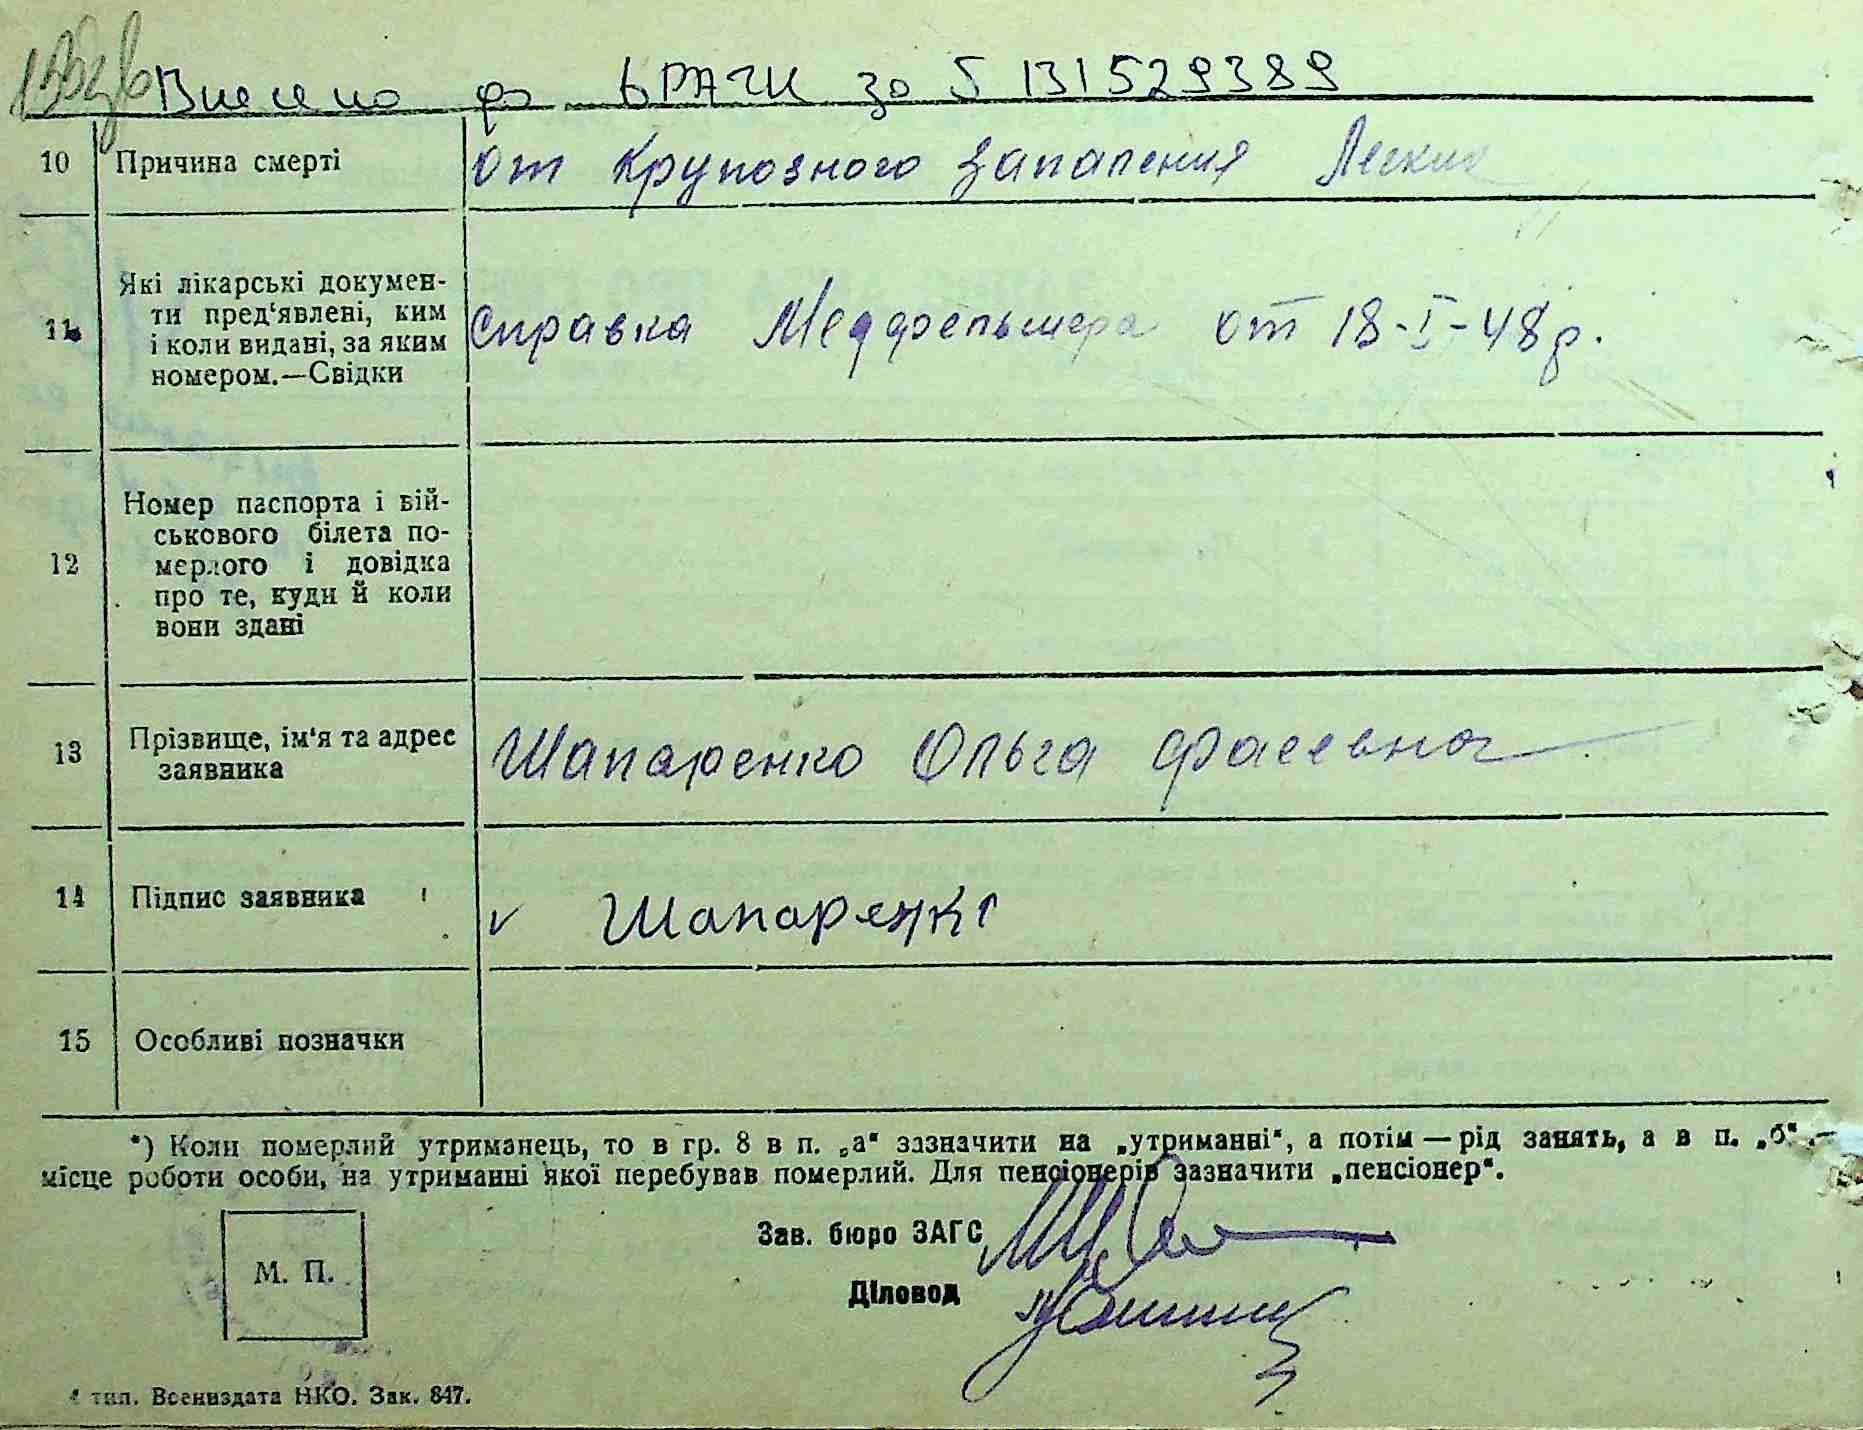 Внесено до ДРАЦС за 5 131529389
10 Причина смерті от крупозного запаления Легких
11. Які лікарські докумен-
ти пред‘явлені, ким
і коли видані, за яким
номером.—Свідки
справка Медфельшера от 18-I-48р.
12 Номер паспорта і вій-
ськового білета по-
мерлого і довідка
про те, куди й коли
вони здані
13 Прізвище, ім‘я та адрес
заявника
Шапаренко Ольга
14 Підпис заявника v Шапаренко
15 Особливі позначки
*) Коли померлий утриманець, то в гр. 8 в п. „а“ зазначити на „утриманні“, а потім — рід занять, а в п. „б“ —
місце роботи особи, на утриманні якої перебував померлий. Для пенсіонерів зазначити „пенсіонер“.
Зав. бюро ЗАГС
М. П.
Діловод
4 тип. Воениздата НКО. Зак. 847.